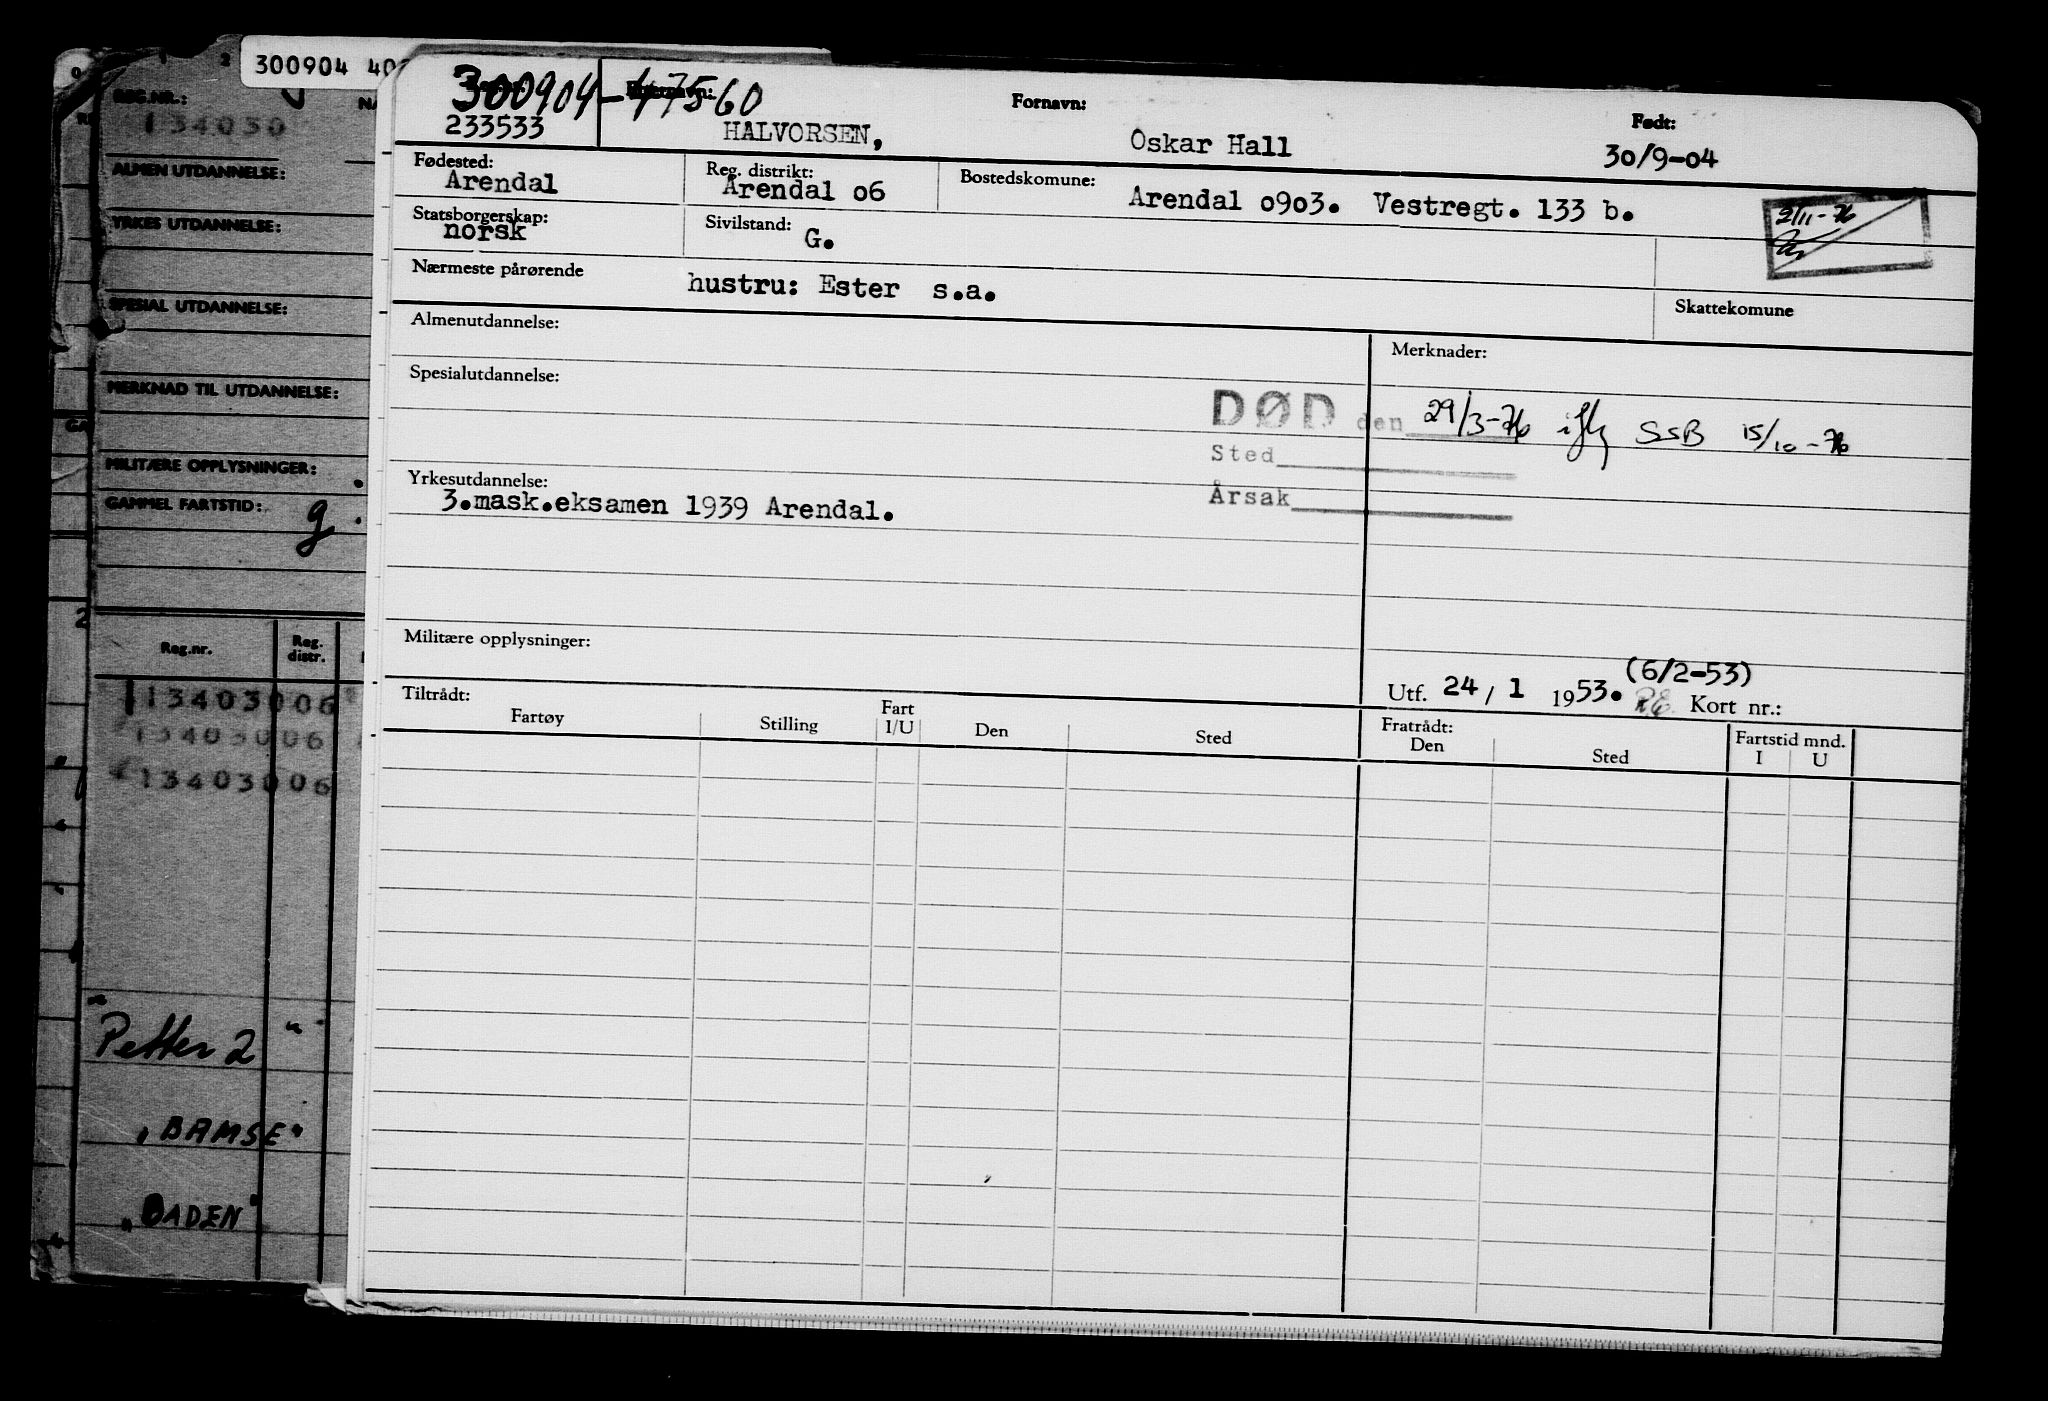 300904
REG.NR.:
134030
ALMEN UTDANNELSE:
YRKES UTDANNELSE:
SPESIAL UTDANNELSE:
MERKNAD TIL UTDANNELSE:
MILITÆRE OPPLYSNINGER:
GAMMEL FARTSTID: g.
Reg.nr. Reg. distr.
134030 06
134030 06
134030 06
"Petter 2"
"BAMSE"
"BADEN"
300904-47560
233533
HALVORSEN,
Fornavn:
Oskar Hall
Født:
30/9-04
Fødested:
Arendal
Reg. distrikt:
Arendal 06
Bostedskomune:
Arendal 0903. Vestregt. 133 b.
Statsborgerskap:
norsk
Sivilstand:
G.
2/11-76
Nærmeste pårørende
hustru: Ester s.a.
Skattekomune
Almenutdannelse:
Merknader:
Spesialutdannelse:
DØD den 29/3-76 iflg SSB 15/10-76
Sted
Årsak
Yrkesutdannelse:
3.mask.eksamen 1939 Arendal.
Militære opplysninger:
(6/2-53)
Utf. 24/ 1 1953. R.E. Kort nr.:
Tiltrådt:
Fartøy Stilling Fart I/U Den Sted
Fratrådt:
Den Sted
Fartstid mnd.
I U